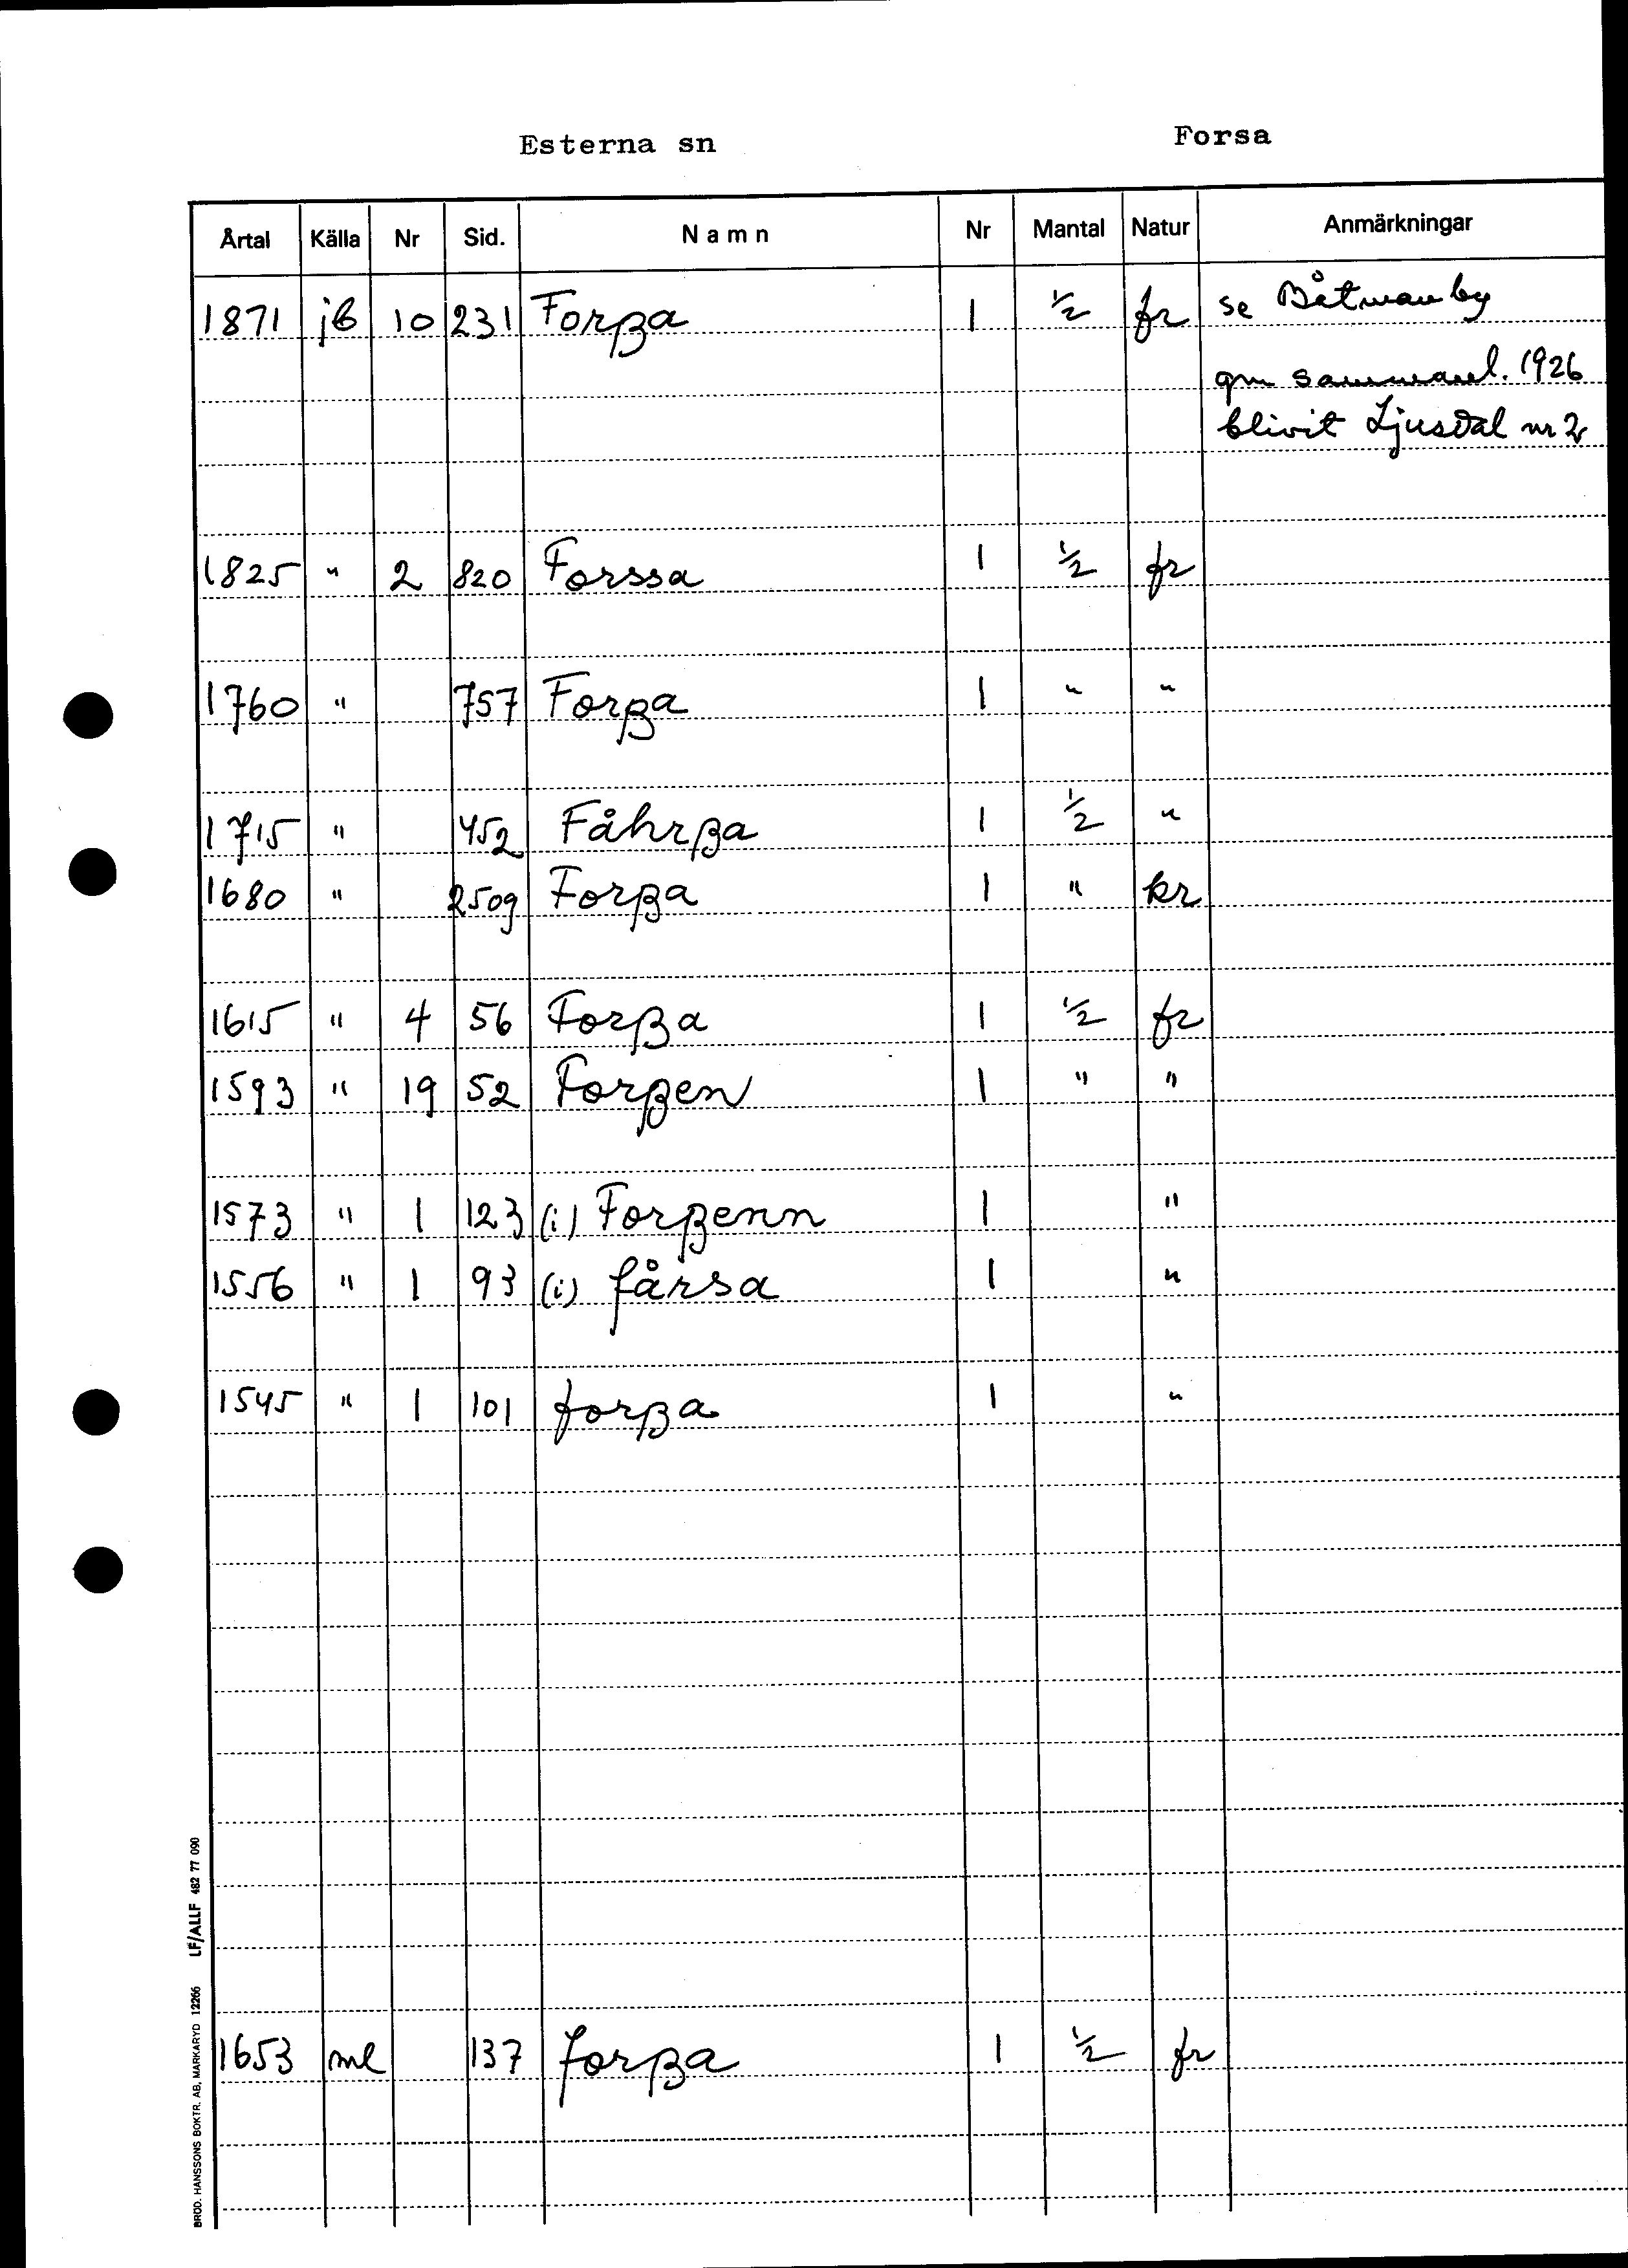 Esterna sn Forsa
Årtal Källa Nr Sid. Namn Nr Mantal Natur Anmärkningar
1871 jb 10 231 Forßa 1 ½ fr se Båtmanby
gm sammanl. 1926
blivit Ljusdal nr 2
1825 " 2 820 Forssa 1 ½ fr
1760 " 757 Forßa 1 " "
1715 " 452 Fåhrßa 1 ½ "
1680 " 2509 Forßa 1 " kr
1615 " 4 56 Forßa 1 ½ fr
1593 " 19 52 Forßen 1 " "
1573 " 1 123 (i) Forßenn 1 "
1556 " 1 93 (i) fårsa 1 "
1545 " 1 101 forßa 1 "
1653 ml 137 forßa 1 ½ fr
BRÖD. HANSSONS BOKTR. AB, MARKARYD 12266 LF/ALLF 482 77 090